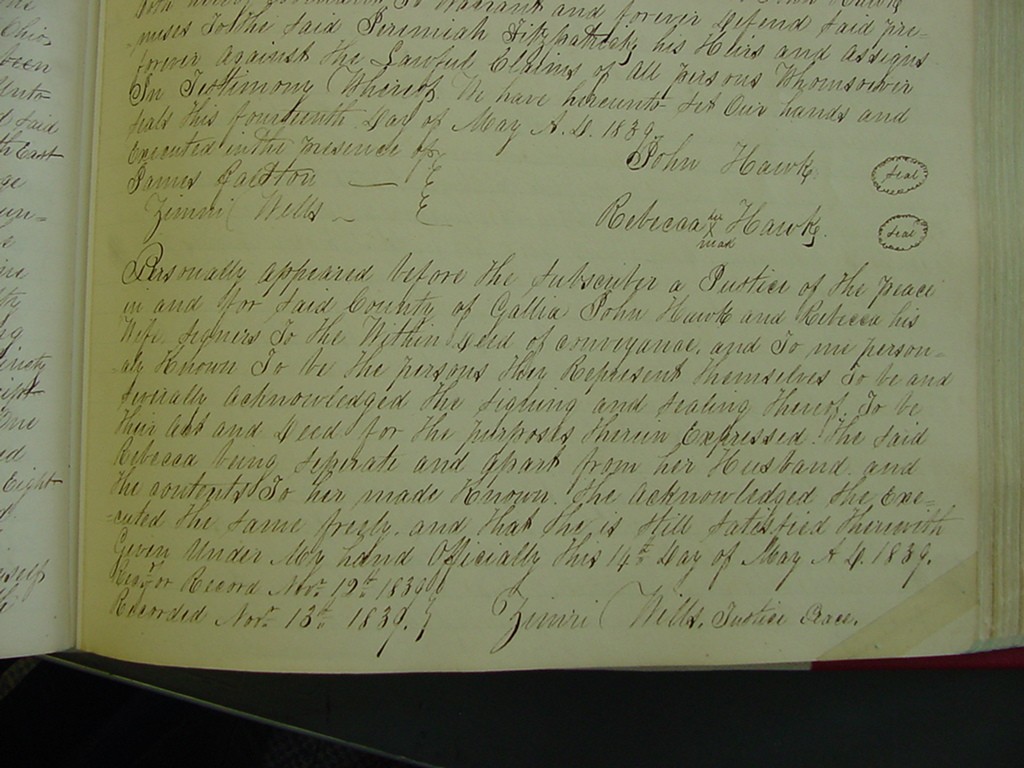 and forever Defend said pre-
-mises To the said Jeremiah Fitzpatrick, his Heirs and assigns
forever against the Lawful Claims of all persons Whomsoever
In Testimony Whereof We have hereunto set Our hands and
seals this fourteenth Day of May A.D. 1839.
Executed in the presence of
James
Zimri Wells
John Hawk seal
Rebecca her Hawk seal
mark
Personally appeared before the subscriber a Justice of the peace
in and for said County of Gallia John Hawk and Rebecca his
Wife, signers To the Within Deed of conveyance, and To me person-
-aly Known To be the persons they Represent themselves To be and
severally acknowledged the signing and sealing thereof, To be
their act and Deed for the purposes therein Expressed. The said
Rebecca being seperate and apart from her Husband, and
the contents To her made Known. She acknowledged she Exe-
-cuted the same freely, and that she is still satisfied therewith
Given Under My hand Officially this 14th Day of May A.D. 1839.
for Record Novr. 1839
Recorded Novr. 13th 1839.
Zimri Wells, Justice Peace.
Ohio
been
said
th East
ge
Eight